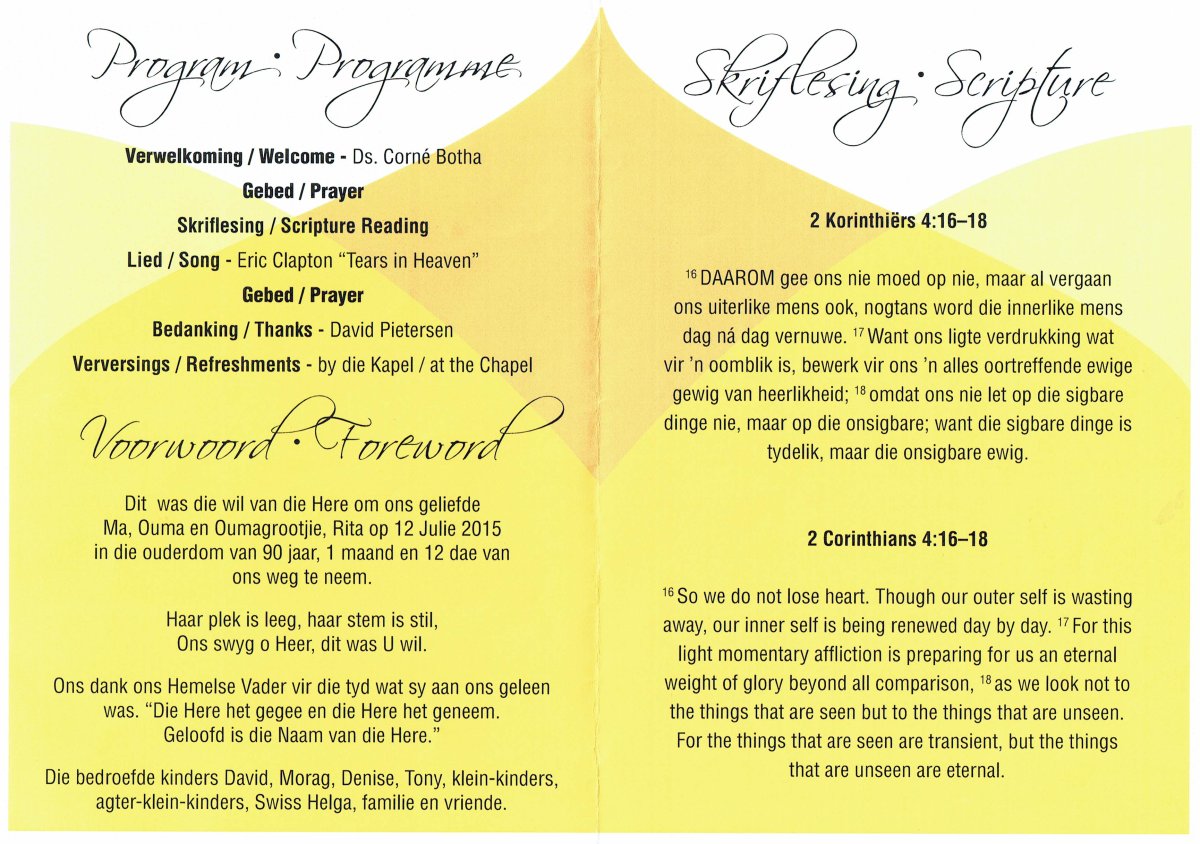 Program · Programme
Verwelkoming / Welcome - Ds. Corné Botha
Gebed / Prayer
Skriflesing / Scripture Reading
Lied / Song - Eric Clapton “Tears in Heaven”
Gebed / Prayer
Bedanking / Thanks - David Pietersen
Verversings / Refreshments - by die Kapel / at the Chapel
Voorwoord · Foreword
Dit was die wil van die Here om ons geliefde
Ma, Ouma en Oumagrootjie, Rita op 12 Julie 2015
in die ouderdom van 90 jaar, 1 maand en 12 dae van
ons weg te neem.
Haar plek is leeg, haar stem is stil,
Ons swyg o Heer, dit was U wil.
Ons dank ons Hemelse Vader vir die tyd wat sy aan ons geleen
was. “Die Here het gegee en die Here het geneem.
Geloofd is die Naam van die Here.”
Die bedroefde kinders David, Morag, Denise, Tony, klein-kinders,
agter-klein-kinders, Swiss Helga, familie en vriende.
Skriflesing · Scripture
2 Korinthiërs 4:16–18
16 DAAROM gee ons nie moed op nie, maar al vergaan
ons uiterlike mens ook, nogtans word die innerlike mens
dag ná dag vernuwe. 17 Want ons ligte verdrukking wat
vir ’n oomblik is, bewerk vir ons ’n alles oortreffende ewige
gewig van heerlikheid; 18 omdat ons nie let op die sigbare
dinge nie, maar op die onsigbare; want die sigbare dinge is
tydelik, maar die onsigbare ewig.
2 Corinthians 4:16–18
16 So we do not lose heart. Though our outer self is wasting
away, our inner self is being renewed day by day. 17 For this
light momentary affliction is preparing for us an eternal
weight of glory beyond all comparison, 18 as we look not to
the things that are seen but to the things that are unseen.
For the things that are seen are transient, but the things
that are unseen are eternal.